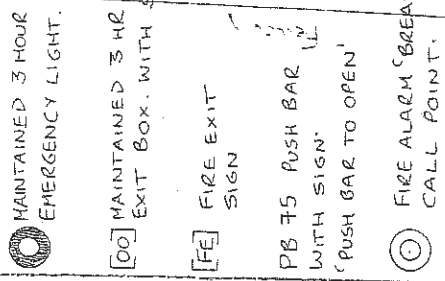 MAINTAINED 3 HOUR
EMERGENCY LIGHT.
[OO] MAINTAINED 3 HR
EXIT BOX. WITH
[FE] FIRE EXIT
SIGN
PB 75 PUSH BAR
WITH SIGN.
'PUSH BAR TO OPEN'
FIRE ALARM 'BREA
CALL POINT.